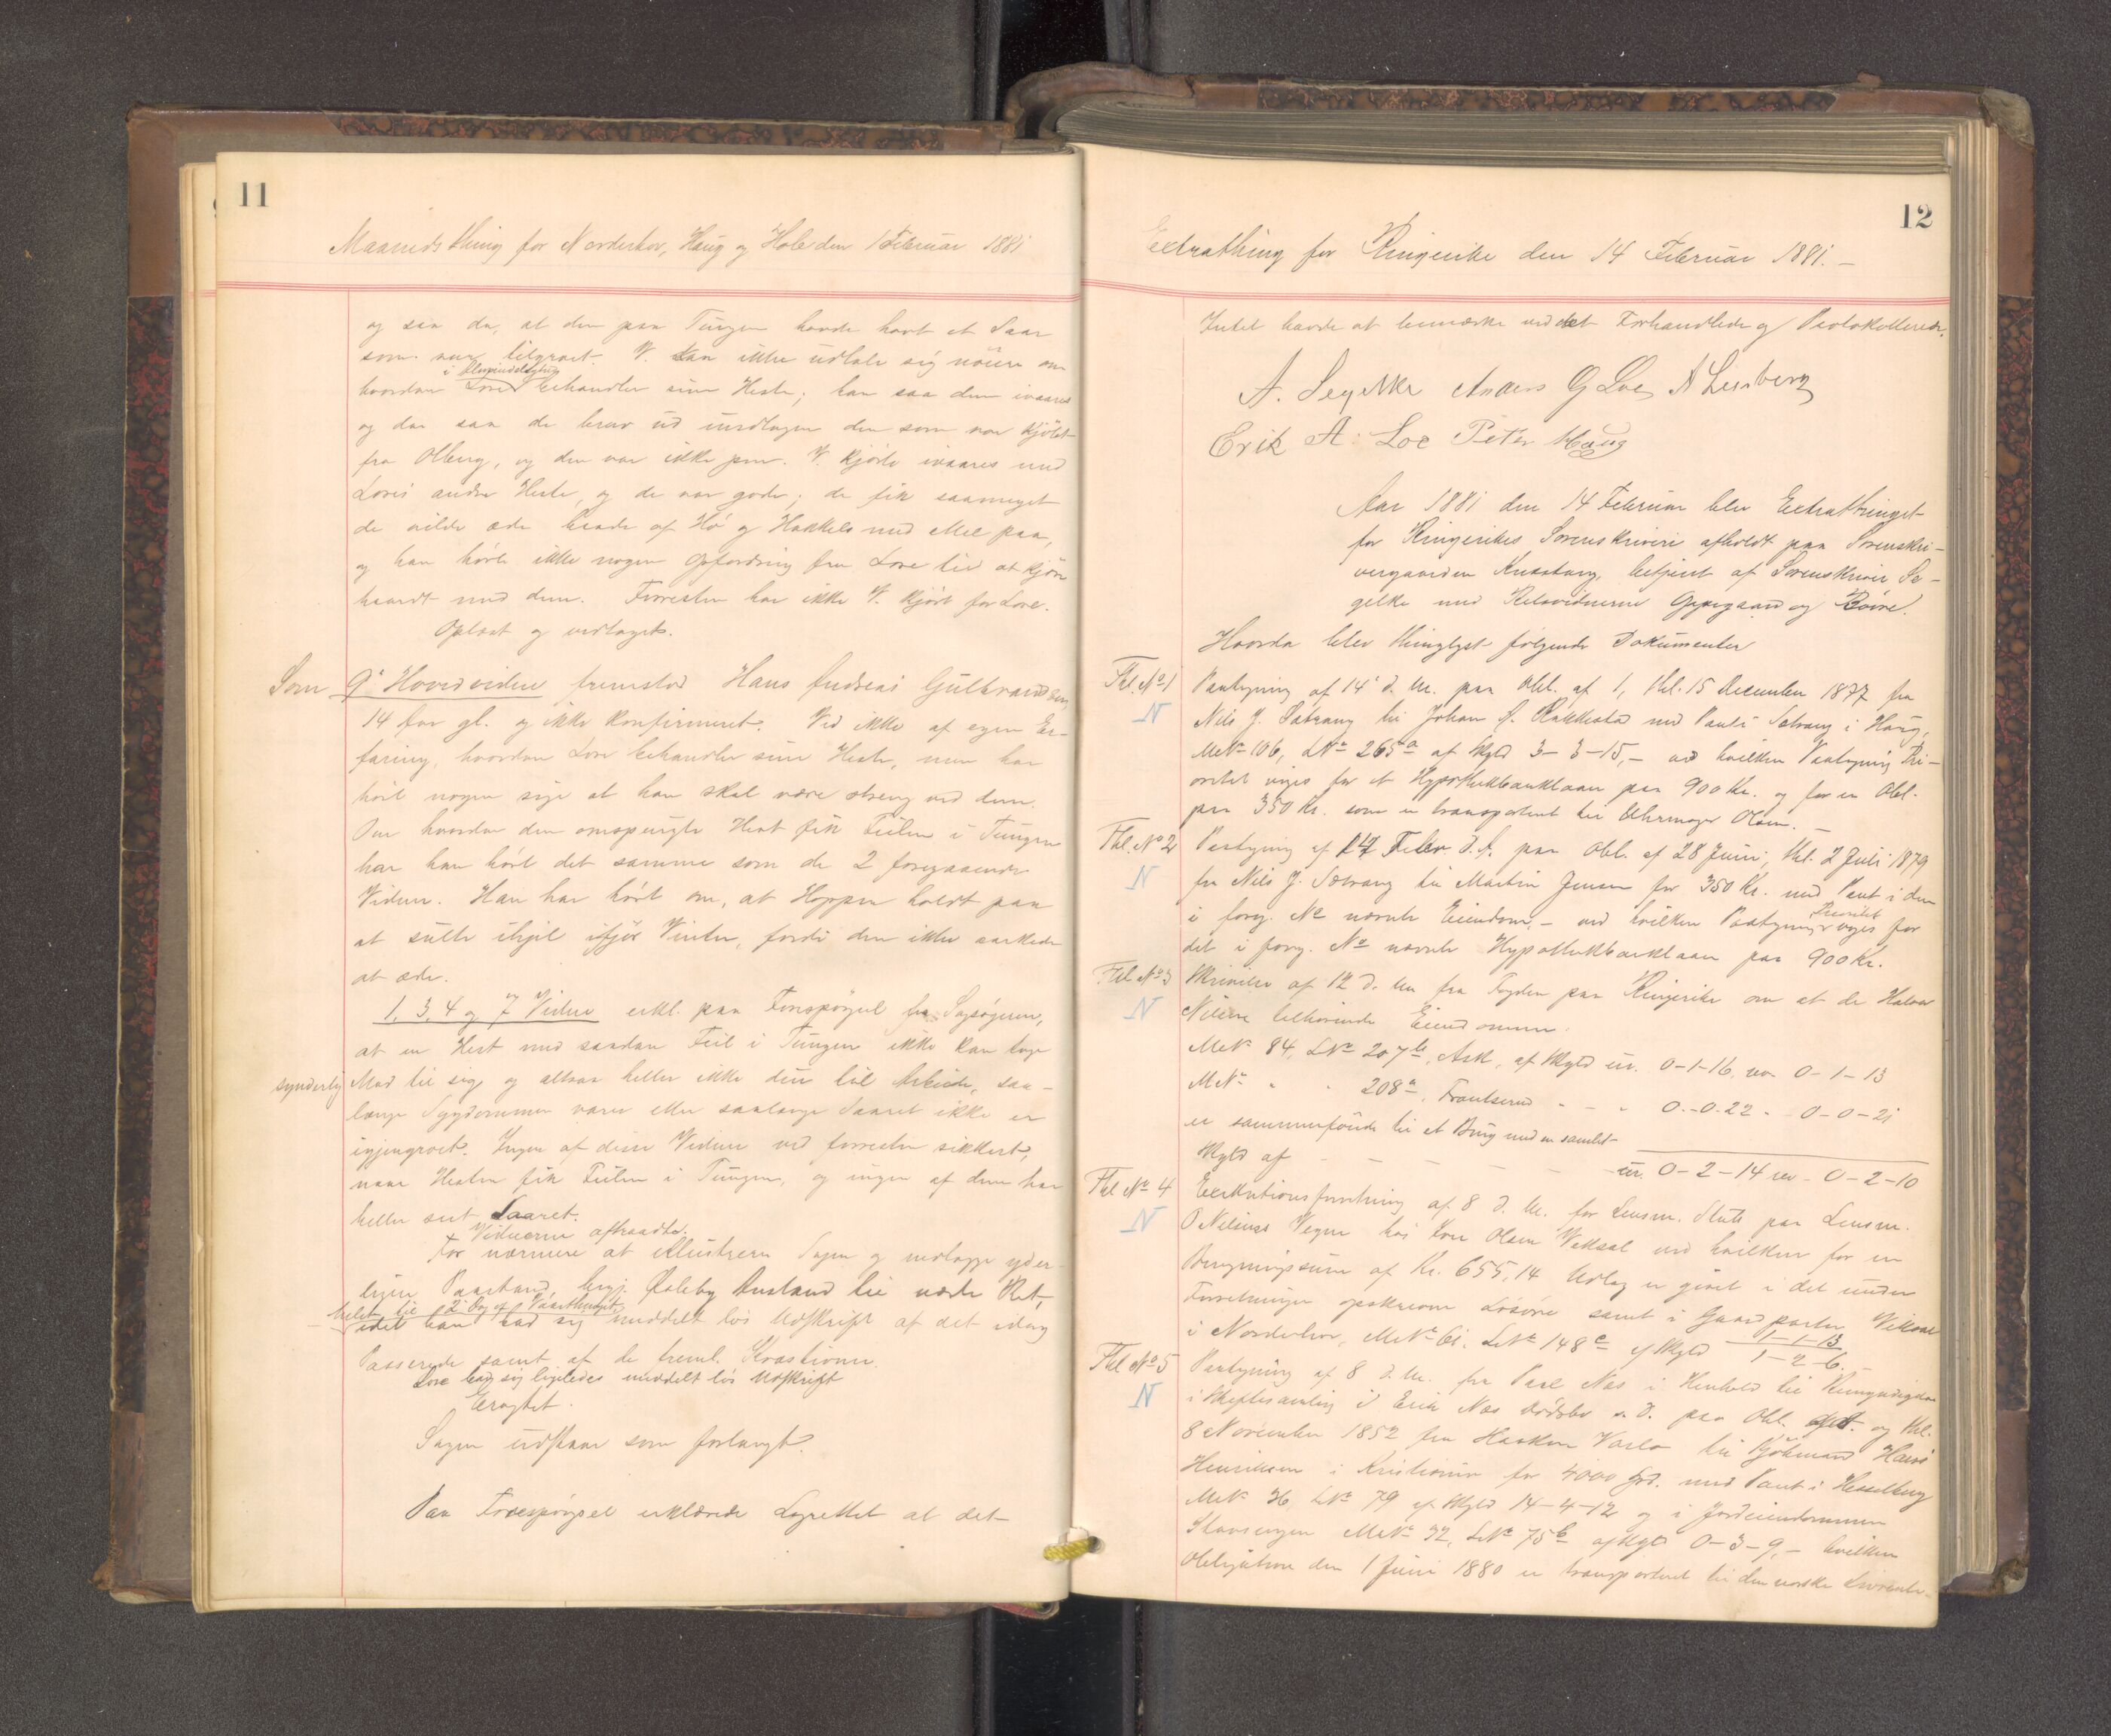 11
Maanedsthing for Norderhov, Haug og Hole den 1 Februar 1881
og saa da, at den paa Tungen havde havt et Saar
som var tilgroet. V. kan ikke udtale sig nöiere om
i Almindelighed
hvordan Lore behandler sine Heste; han saa dem ivaares
og da saa de brav ud undtagen den som var kjöbt
fra Olberg, og den var ikke pen. V. kjörte ivaares med
Lores andre Heste, og de var gode; de fik saameget
de vilde æde baade af Hö og Hakkels med Mel paa,
og han hörte ikke nogen Opfordring fra Lore til at kjöre
haardt med dem. Forresten har ikke V. kjört for Lore.
Oplæst og vedtaget.
Som 9de Hovedvidne fremstod Hans Andreas Gulbrandsen,
14 Aar gl. og ikke konfirmeret. Ved ikke af egen Er-
faring, hvordan Lore behandler sine Heste, men har
hört nogen sige at han skal være streng ved dem.
Om hvordan den omspurgte Hest fik Feilen i Tungen
har han hört det samme som de 2 foregaaende
Vidner. Han har hört om, at Hoppen holdt paa
at sulte ihjel ifjor Vinter, fordi den ikke
at æde.
1, 3, 4 og 7 Vidne erkl. paa Forespörgsel fra Sagsögeren,
at en Hest med saadan Feil i Tungen ikke kan tage
synderlig Mad til sig og altsaa heller ikke due til Arbeide, saa-
længe Sygdommen varer eller saalænge Saaret ikke er
igjengroet. Ingen af disse Vidner ved forresten sikkert,
naar Hesten fik Feilen i Tungen, og ingen af dem har
heller seet Saaret.
Vidnerne aftraadte.
For nærmere at illustrere Sagen og nedlægge yder-
ligere Paastand, begj. Öoleby Anstand til næste Ret,
helst til 2 Dag af Vaarthinget
idet han bad sig meddelt lös Udskrift af det idag
Passerede samt af de freml. Kvæstioner.
Lore bad sig ligeledes meddelt lös Udskrift
Eragtet.
Sagen udstaar som forlangt.
Paa Forespörgsel erklærede Lagrettet at det
12
Extrathing for Ringerike den 14 Februar 1881. –
Intet havde at bemærke ved det Forhandlede og Protokollerede.
A. Segelke Anders G Loe A Lersberg
Erik A: Loe Peter Haug
Aar 1881 den 14 Februar blev Extrathinget
for Ringerikes Sorenskriveri afholdt paa Sorenskri-
vergaarden Knestang, betjent af Sorenskriver Se-
gelke med Retsvidnerne Oppegaard og
Hvorda blev thinglyst fölgende Dokumenter
Thl. No 1 Paategning af 14 d. M. paa Obl. af 1, thl. 15 December 1877 fra
N Nils J. Sætrang til Johan A. Rakkestad med Pant i Sætrang i Haug,
MNo 106, LNo 265a af Skyld 3–3–15, – ved hvilken Paategning Pri-
oritet viges for et Hypothekbanklaan paa 900 Kr. og for en Obl.
paa 350 Kr. som er transporteret til Uhrmager Olsen. –
Thl. No 2 Paategning af 14 Febr. d. A. paa Obl. af 28 Juni, thl. 2 Juli 1879
N fra Nils J. Sætrang til Martin Jensen for 350 Kr. med Pant i den
i forrg. No nævnte Eiendom, – ved hvilken Paategning Prioritet viges for
det i forrg. No nævnte Hypothekbanklaan paa 900 Kr.
Thl No 3 Skrivelse af 12 d. M. fra Fogden paa Ringerike om at de Halvor
N Nilsen tilhörende Eiendomme
MNo 84, LNo 207b, Ask, af Skyld ur. 0–1–16, rev. 0–1–13
MNo " " 208a, Frantserud " – – " 0.–0.22 – 0–0–21
er sammenföiede til et Brug med en samlet
Skyld af – – – – – – ur. 0–2–14 rev – 0–2–10
Thl No 4 Exekutionsforretning af 8 d. M. for Lensm. Stub paa Lensm.
N O Nilsens Vegne hos Iver Olsen Veksal ved hvilken for en
Beregningssum af Kr. 655,14 Udlæg er givet i det under
Forretningen opskrevne Lösöre samt i Gaardparten Veksal
i Norderhov, MNo 61. LNo 148c af Skyld 1–1–13
1–2–6. –
Thl No 5 Paategning af 8 d. M. fra Paal Næs i Henhold til Bemyndigelse
N i Skiftesamling i Erik Næs Dödsbo s. D. paa Obl. dat. og thl.
8 November 1852 fra Haaken Varlo til Kjöbmand Hans
Henriksen i Kristiania for 4000 Spd. med Pant i Hesselberg
MNo 36, LNo 79 af Skyld 14–4–12 og i Jordeiendommen
Stavsengen MNo 32, LNo 75b af Skyld 0–3–9, – hvilken
Obligation den 1 Juni 1880 er transporteret til den norske Livrente-